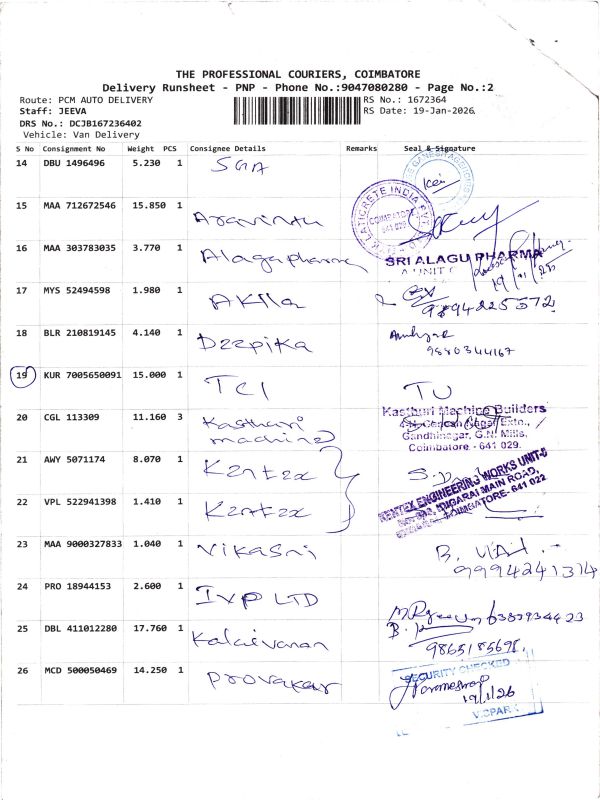 THE PROFESSIONAL COURIERS, COIMBATORE
Delivery Runsheet - PNP - Phone No.:9047080280 - Page No.:2
Route: PCM AUTO DELIVERY
RS No.: 1672364
Staff: JEEVA
RS Date: 19-Jan-2026
DRS No.: DCJB167236402
Vehicle: Van Delivery
S No Consignment No Weight PCS Consignee Details Remarks Seal & Signature
14 DBU 1496496 5.230 1 SGA
15 MAA 712672546 15.850 1 Aravinth
16 MAA 303783035 3.770 1 Alagapharma SRI ALAGU PHARMA
17 MYS 52494598 1.980 1 Akila 9894225572
18 BLR 210819145 4.140 1 Deepika 9880344167
19 KUR 7005650091 15.000 1 TCI
20 CGL 113309 11.160 3 Kasthuri machine
Kasthuri Machine Builders
Gandhinagar, G.N. Mills,
Coimbatore - 641 029.
21 AWY 5071174 8.070 1 Kentex
KENTEX ENGINEERING WORKS UNIT-II
COIMBATORE- 641 022
22 VPL 522941398 1.410 1 Kentex
23 MAA 9000327833 1.040 1 Vikasni 9994241314
24 PRO 18944153 2.600 1 IVP LTD
25 DBL 411012280 17.760 1 Kalaivanan 9865185698
26 MCD 500050469 14.250 1 Provakar
SECURITY CHECKED
19/1/26